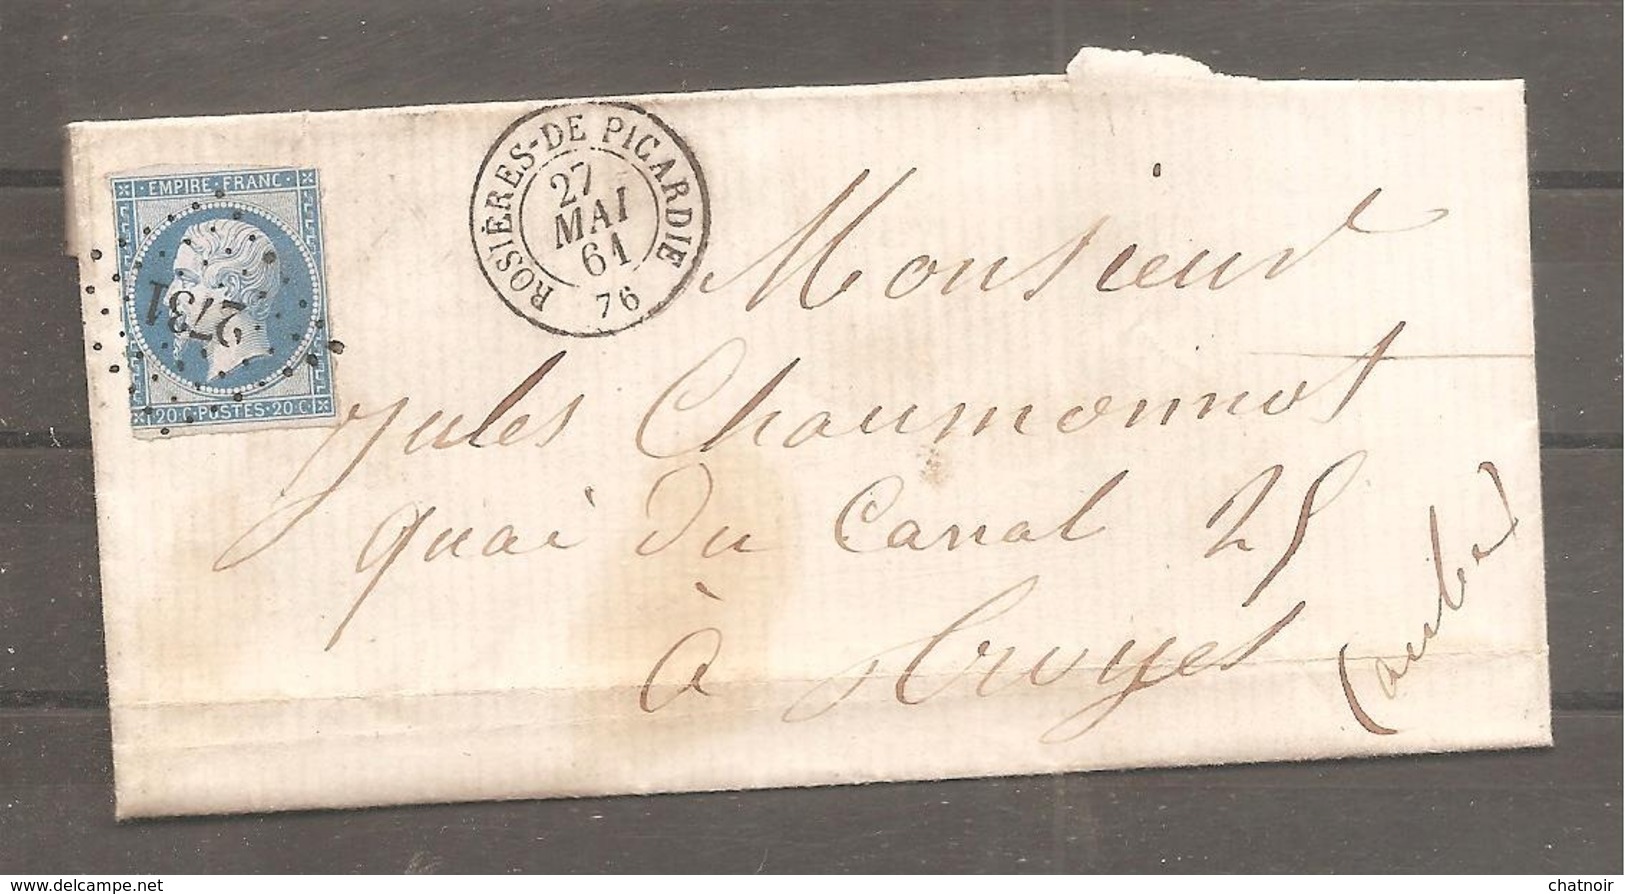 EMPIRE FRANC
2731
20 C · POSTES · 20 C
ROSIÈRES-DE PICARDIE
27
MAI
61
76
Monsieur
Jules Chaumonnot
quai du Canal 25
à Troyes
(aube)
delcampe.net
chatnoir